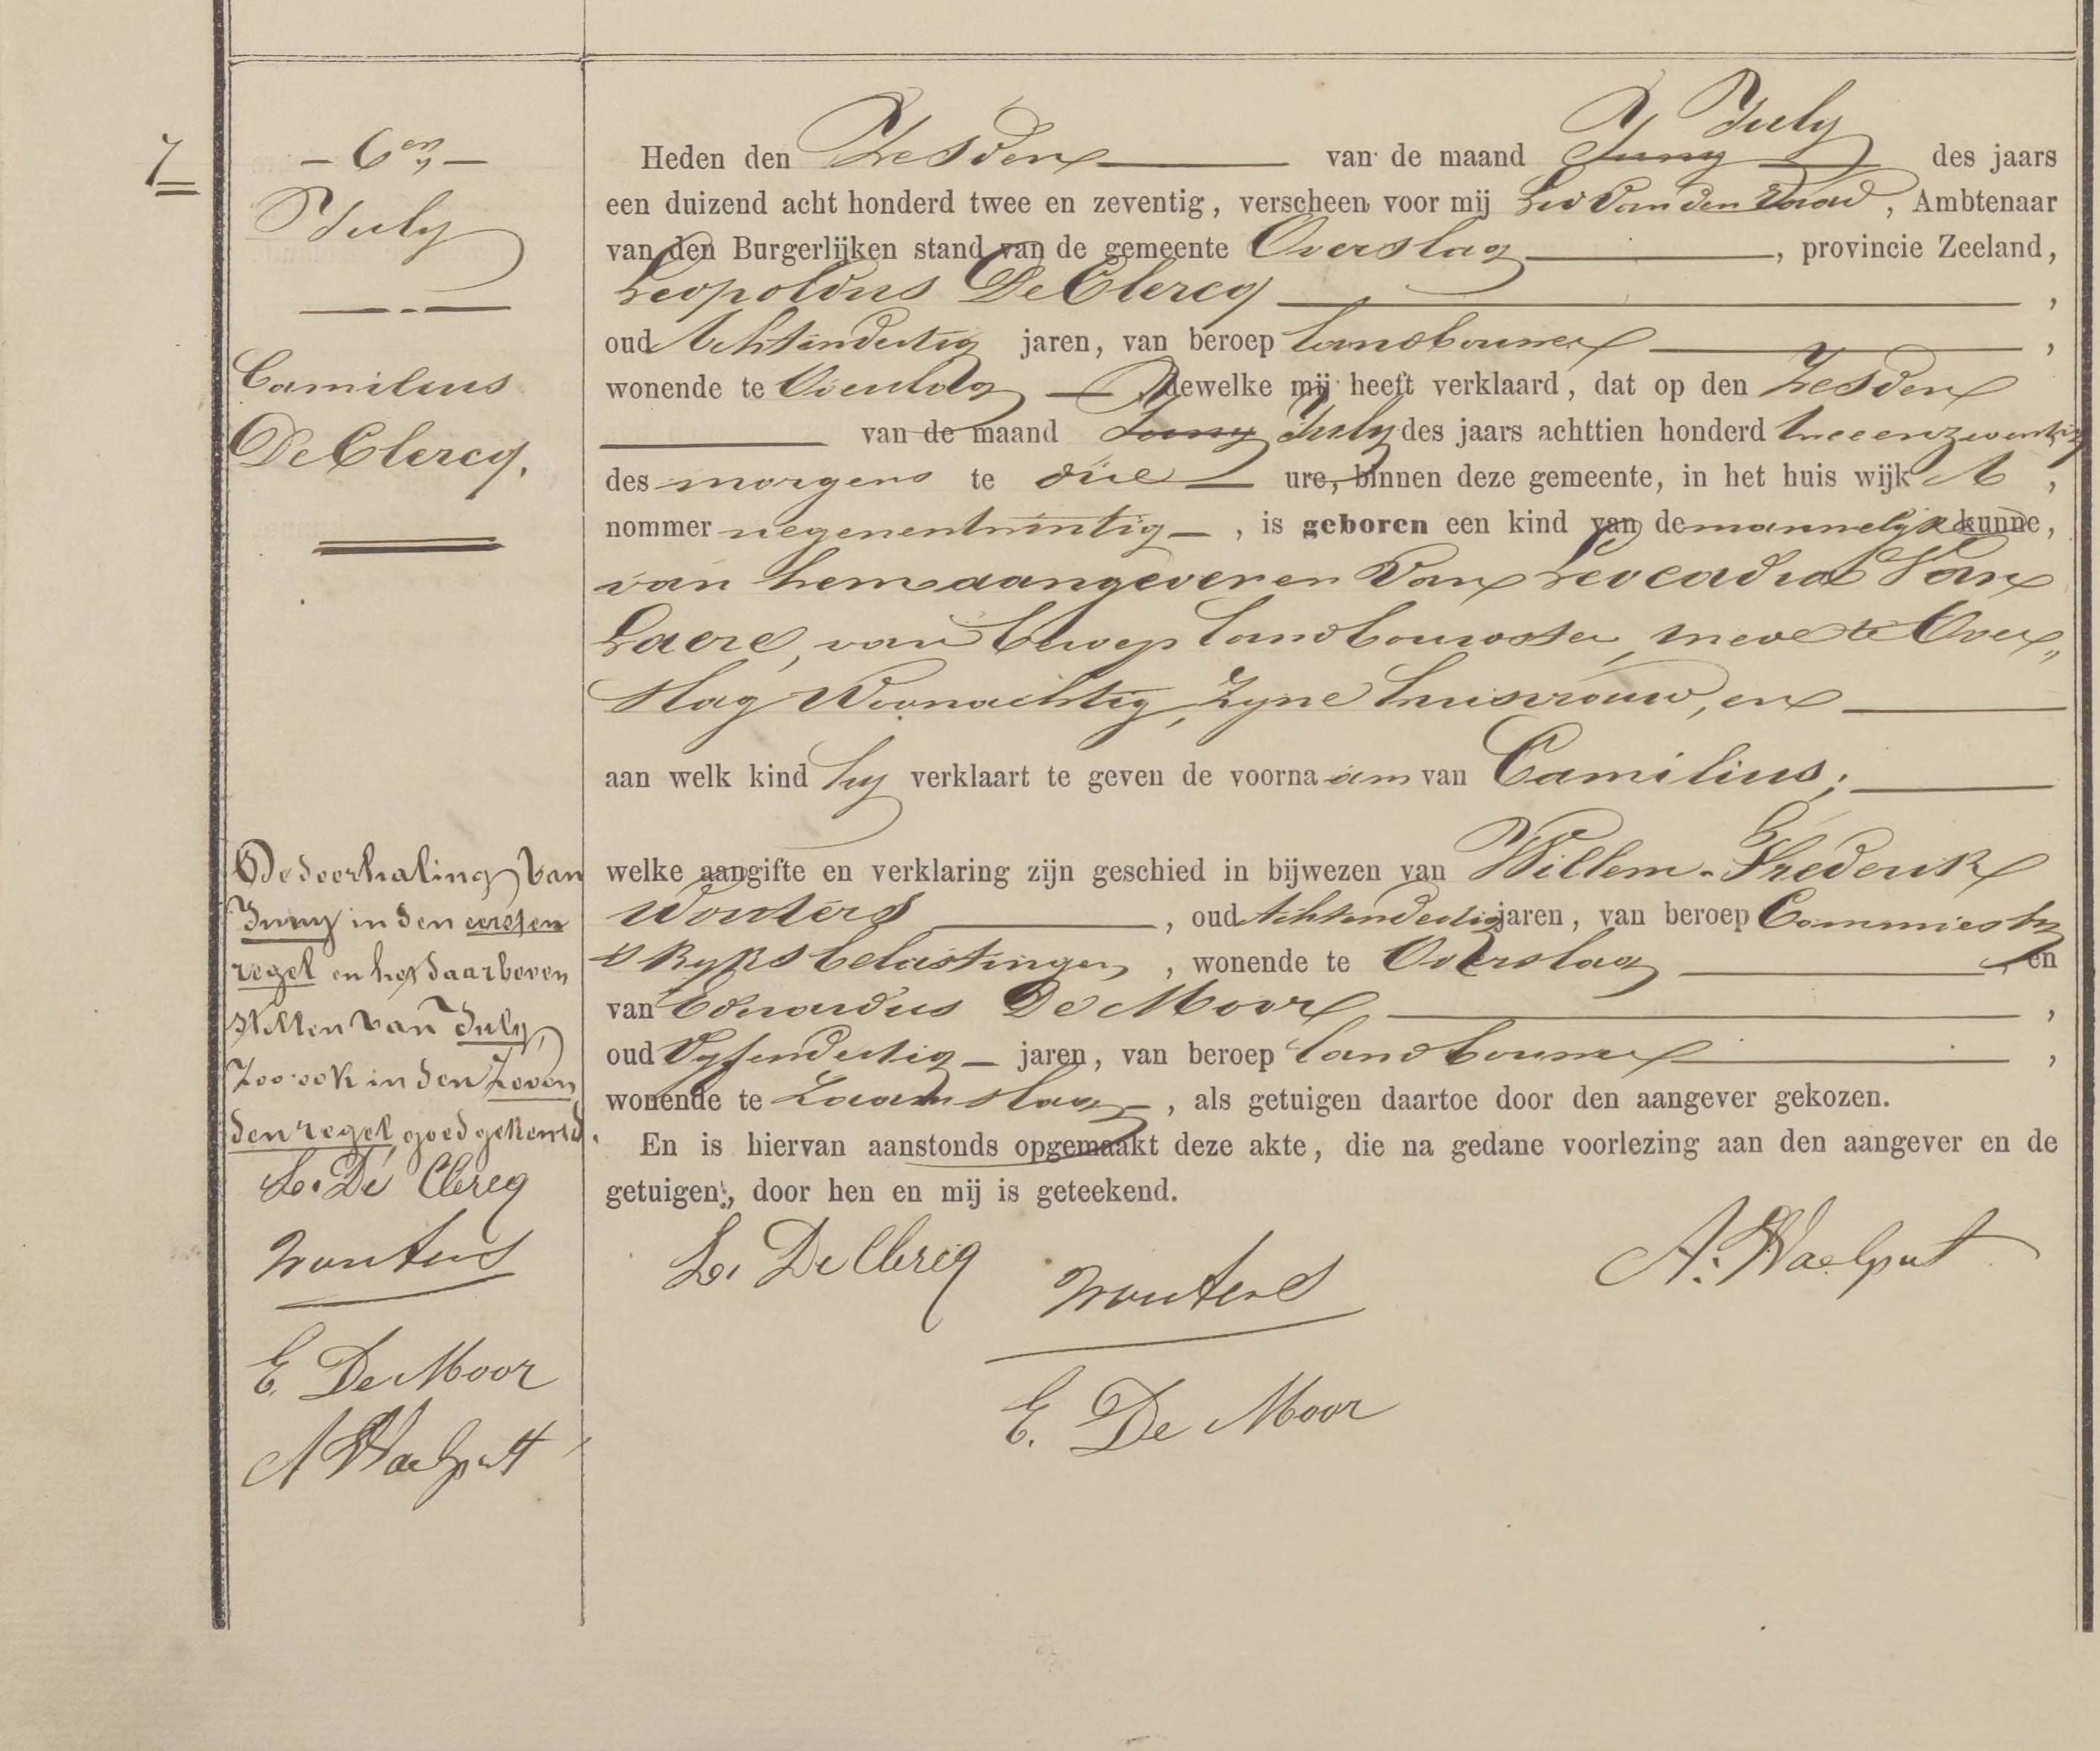 7
- 6en -
July
Camilius
De Clercq.
De doorhaling van
Juny in den eersten
regel en het daarboven
stellen van July,
zoo ook in den zeven
den regel, goedgekeurd.
L. De Clercq
Wouters
E. De Moor
A Waelput
Heden den Zesden van de maand Juny July des jaars
een duizend acht honderd twee en zeventig, verscheen voor mij Ambtenaar
van den Burgerlijken stand van de gemeente Overslag, provincie Zeeland,
Leopoldus De Clercq,
oud Achtendertig jaren, van beroep landbouwer,
wonende te Overslag dewelke mij heeft verklaard, dat op den Zesden
van de maand Juny July des jaars achttien honderd tweeenzeventig
des morgens te drie ure, binnen deze gemeente, in het huis wijk A,
nommer negenentwintig, is geboren een kind van de mannelijke kunne,
van hem aangever en van Leocadia Van
Laere, van beroep landbouwster, mede te Over„
slag Woonachtig, zyne huisvrouw, en
aan welk kind hy verklaart te geven de voornaam van Camilius;
welke aangifte en verklaring zijn geschied in bijwezen van Willem-Frederik
Wouters, oud Achtendertig jaren, van beroep Commies by
's Ryks belastingen, wonende te Overslag, en
van Eduardus De Moor,
oud Vyfendertig jaren, van beroep landbouwer,
wonende te Zaamslag, als getuigen daartoe door den aangever gekozen.
En is hiervan aanstonds opgemaakt deze akte, die na gedane voorlezing aan den aangever en de
getuigen, door hen en mij is geteekend.
L. De Clercq
Wouters
A. Waelput
E. De Moor